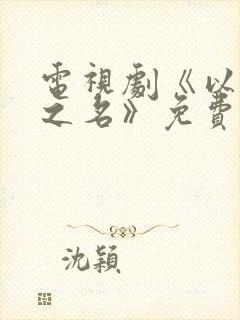 電視劇《以
之名》免費
沈穎